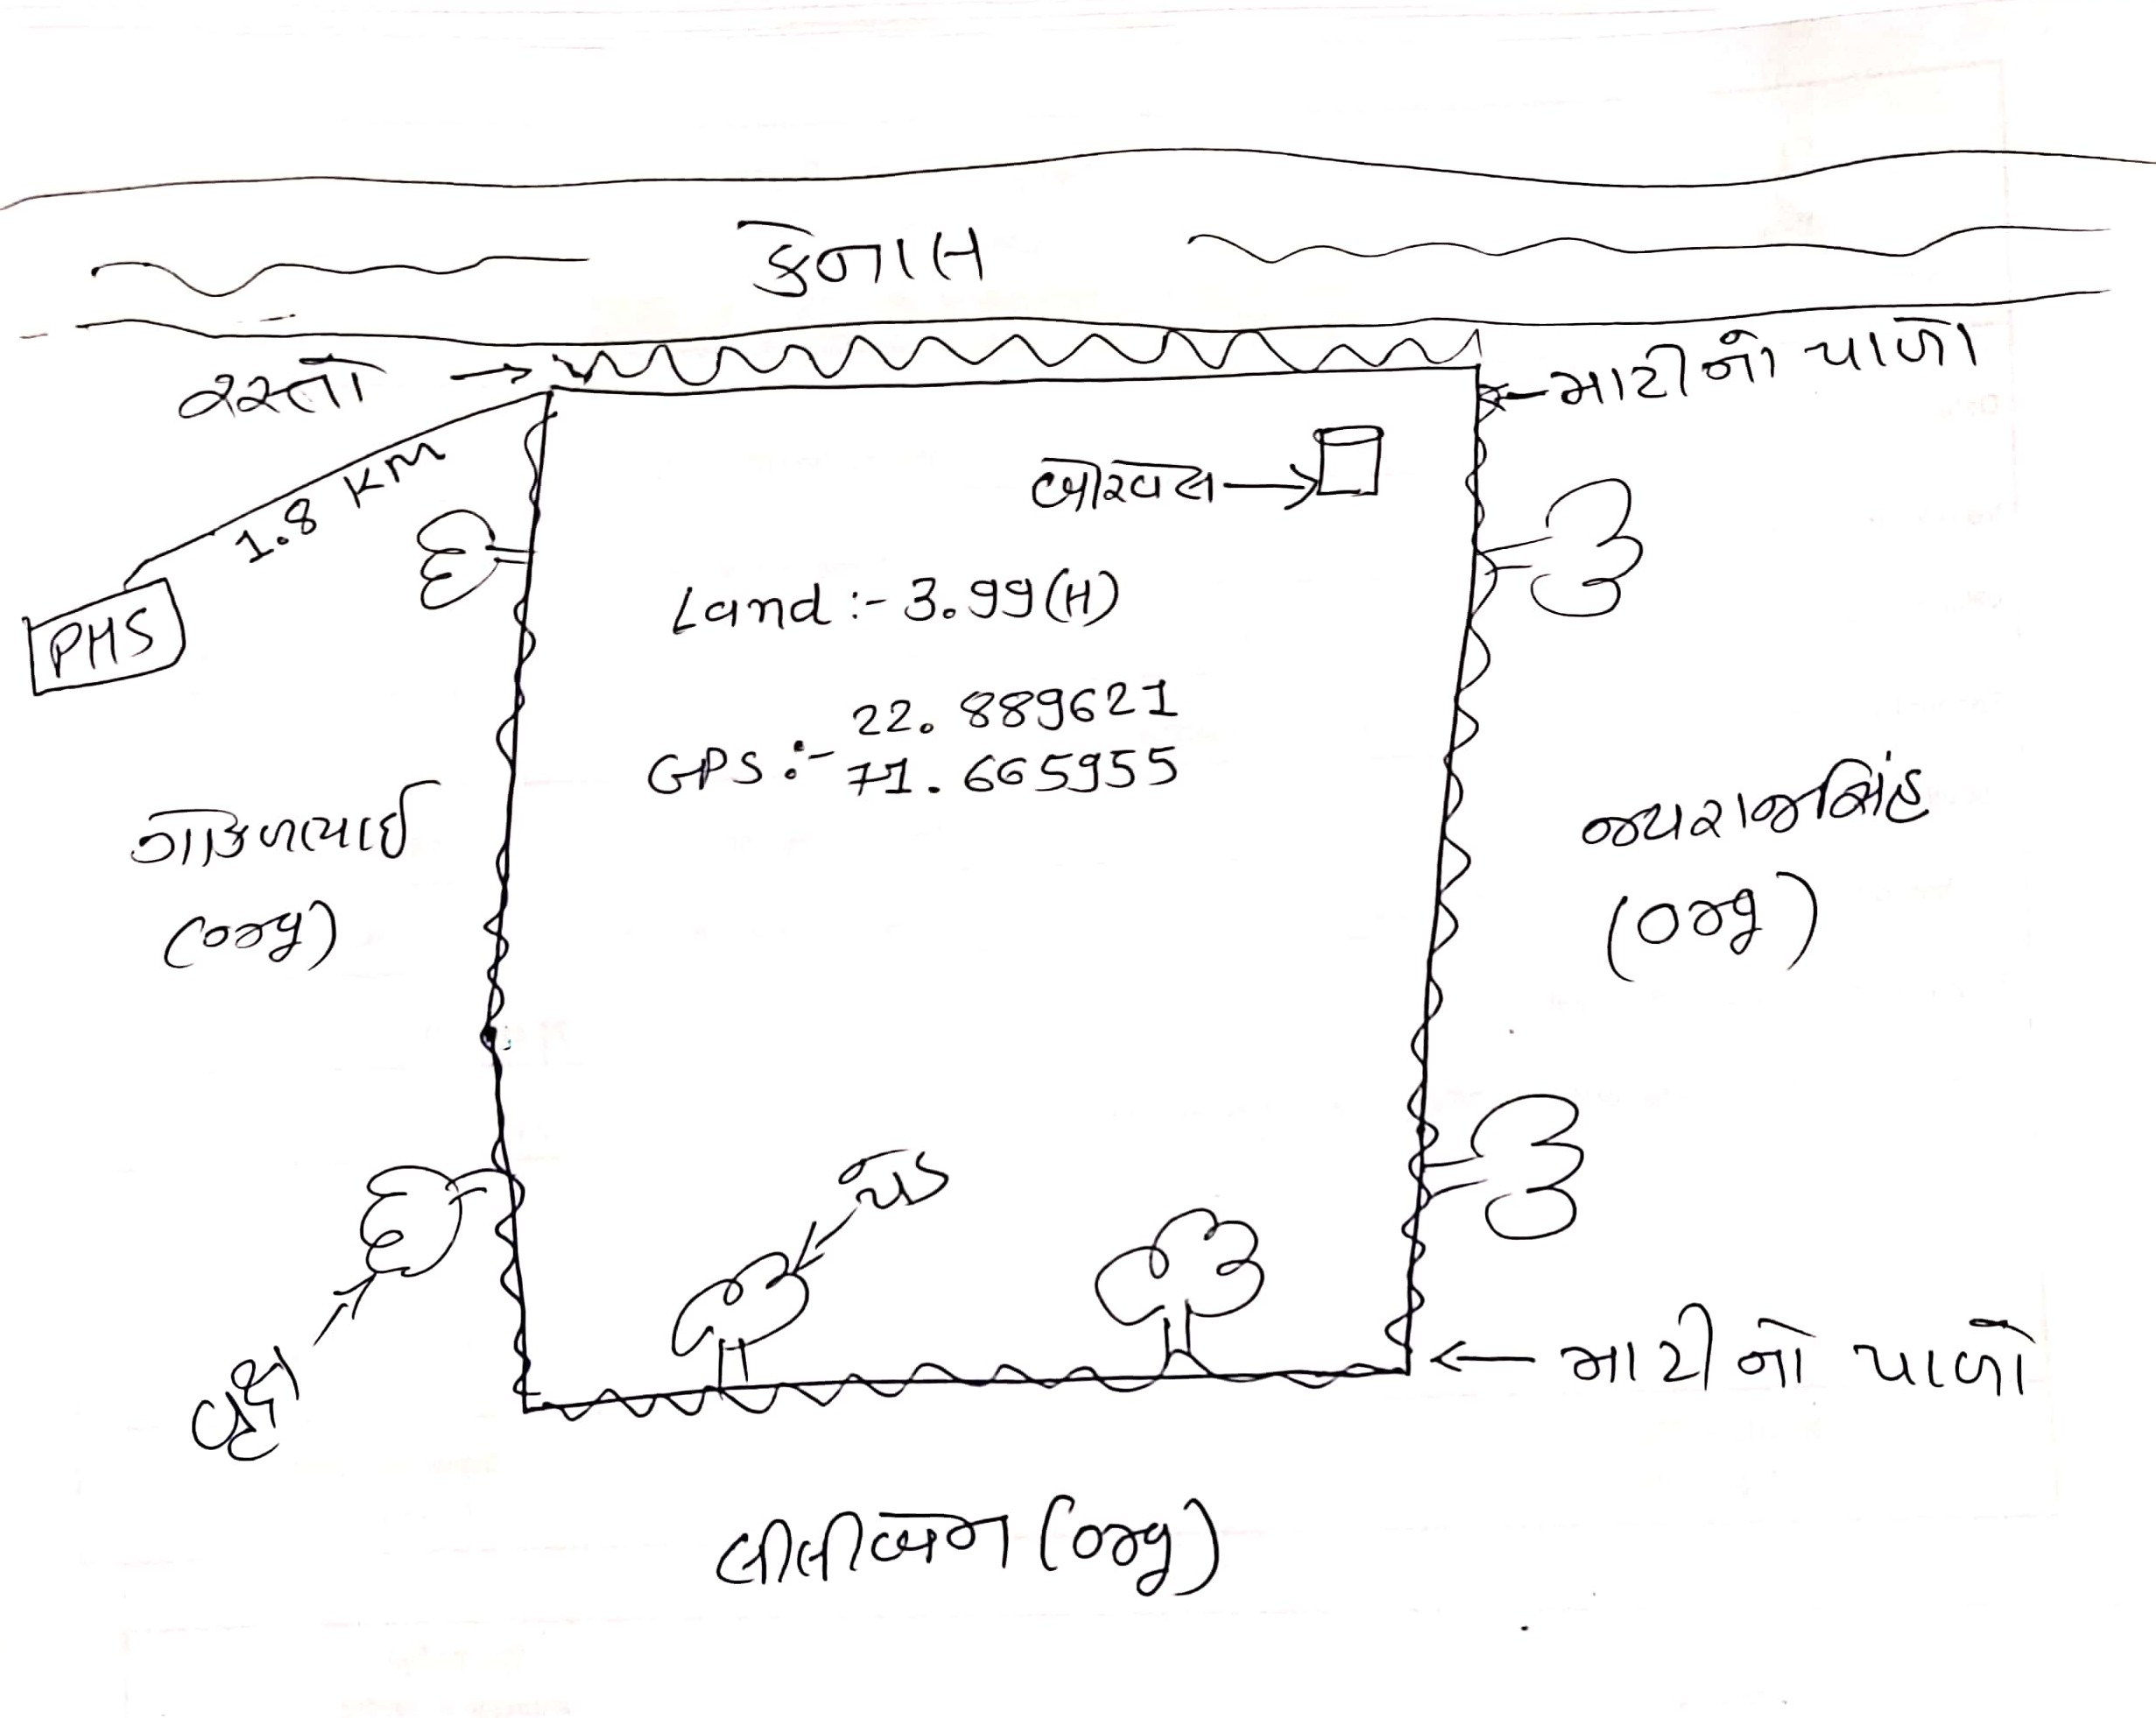 કેનાલ
રસ્તો
માટીનો પાળો
1.8 KM
બોરવેલ
PHS
Land :- 3.99(H)
22.889621
GPS :- 71.665955
ગોકળભાઈ
(org)
જયરાજસિંહ
(org)
વૃક્ષો
માટીનો પાળો
(org)